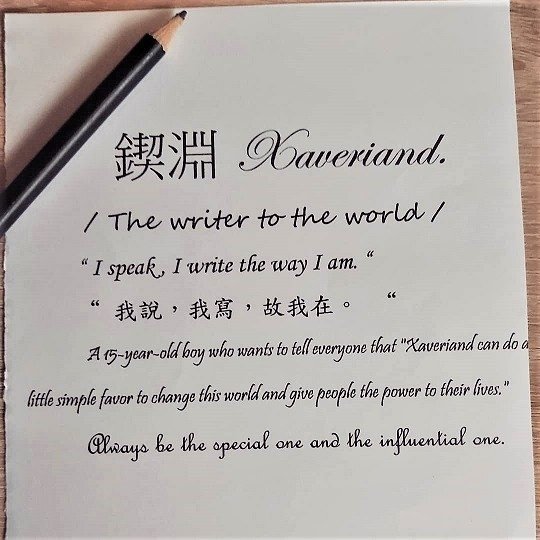 鍥淵 Xaveriand.
/ The writer to the world /
“ I speak, I write the way I am. “
“ 我說，我寫，故我在。 “
A 15-year-old boy who wants to tell everyone that "Xaveriand can do a
little simple favor to change this world and give people the power to their lives."
Always be the special one and the influential one.